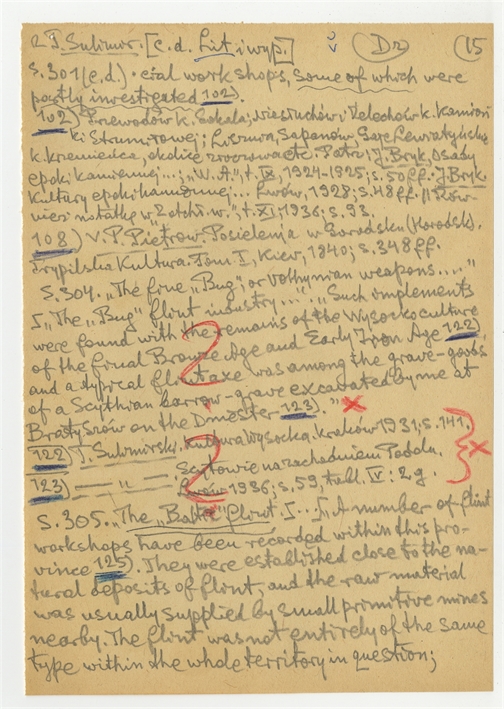 2 T. Sulimir. [c.d. Lit. i wyp.] (Dz) (15
S.301(c.d.) • cial workshops, some of which were
partly investigated 102).
102) Przewodów k. Sokala; Niestuchów i Żelechów k. Kamionki
Strumiłowej; Luszwa, Sapanów, Gaje Lewiatyńskie
k. Krzemieńca, okolice etc. Patrz: J. Bryk, Osady
epoki kamiennej...; "W.A.", t. IX, 1924-1925; s. 50ff. J. Bryk.
Kultury epoki kamiennej... Lwów, 1928; s. 48ff. Rów-
nież notatkę w Z otchł. w.", t. XI, 1936; s. 93.
108) V.P. Pietrow Posielenja w Gorodsku (Horodsk).
Trypilska Kultura. Tom I, Kiev, 1940; s. 348ff.
S.304. "The fine "Bug", or Volhynian weapons...."
I "The "Bug" flint industry....." "Such implements
were found with the remains of the Wysocko culture
of the final Bronze Age and Early Iron Age 122),
and a typical flint axe was among the grave-goods
of a Scythian barrow-grave excavated by me at
Bratyszów on the Dniester 123)." x
122) T. Sulimirski. Kultura Wysocka. Kraków 1931; s. 141.
Scytowie na zachodniem Podolu.
123) — " — Lwów 1936; s. 59, tabl. IV: 2g. x
S.305. "The "Baltic" Flint. I...I A number of flint
workshops have been recorded within this pro-
vince 125). They were established close to the na-
tural deposits of flint, and the raw material
was usually supplied by small primitive mines
nearby. The flint was not entirely of the same
type within the whole territory in question;